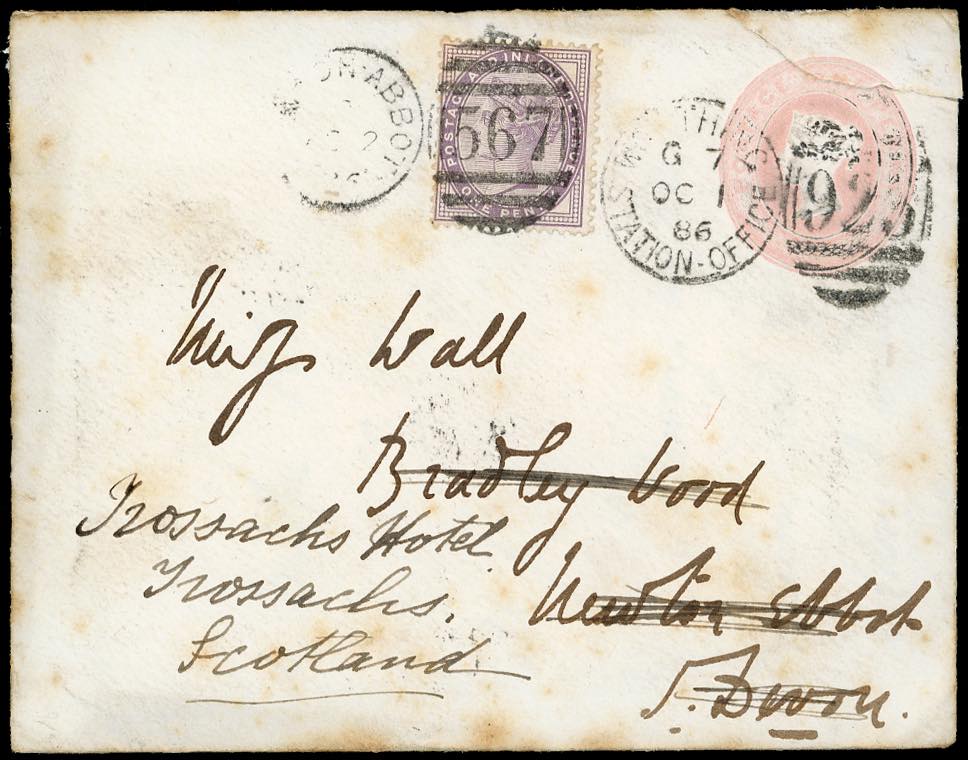 ON-ABBOT
OC 2
86
POSTAGE AND INLAND REVENUE
567
ONE PENNY
G 7
OC 1
86
STATION-OFFICE
923
Miss Wall
Bradley Wood
Newton Abbot
S. Devon.
Trossachs Hotel.
Trossachs.
Scotland